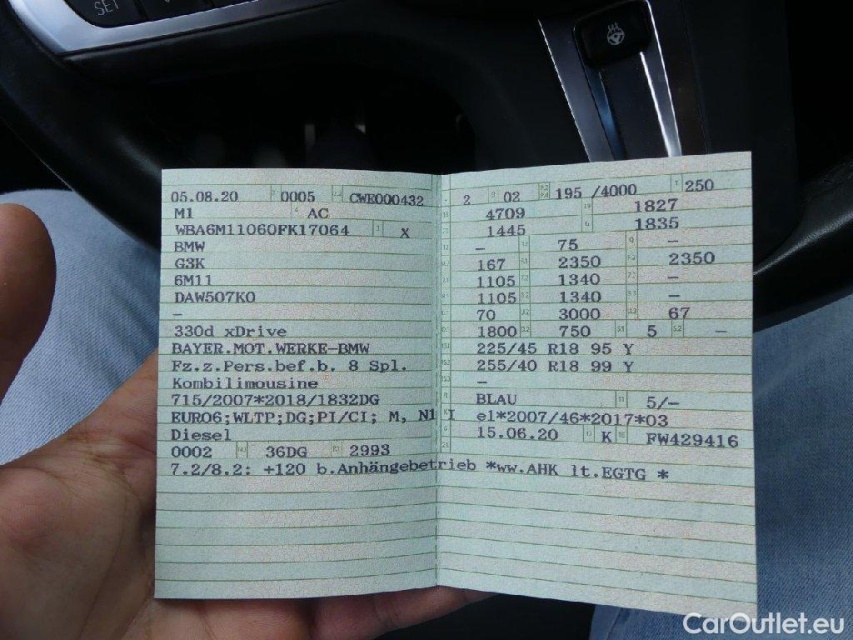 SET
05.08.20 0005 CWE000432
M1 AC
WBA6M11060FK17064 X
BMW
G3K
6M11
DAW507K0
–
330d xDrive
BAYER.MOT.WERKE-BMW
Fz.z.Pers.bef.b. 8 Spl.
Kombilimousine
715/2007*2018/1832DG
EURO6;WLTP;DG;PI/CI; M, N1 I
Diesel
0002 36DG 2993
7.2/8.2: +120 b.Anhängebetrieb *ww.AHK lt.EGTG *
2 02 195 /4000 250
4709 1827
1445 1835
– 75 –
167 2350 2350
1105 1340 –
1105 1340 –
70 3000 67
1800 750 5 –
225/45 R18 95 Y
255/40 R18 99 Y
–
BLAU 5/–
e1*2007/46*2017*03
15.06.20 K FW429416
CarOutlet.eu